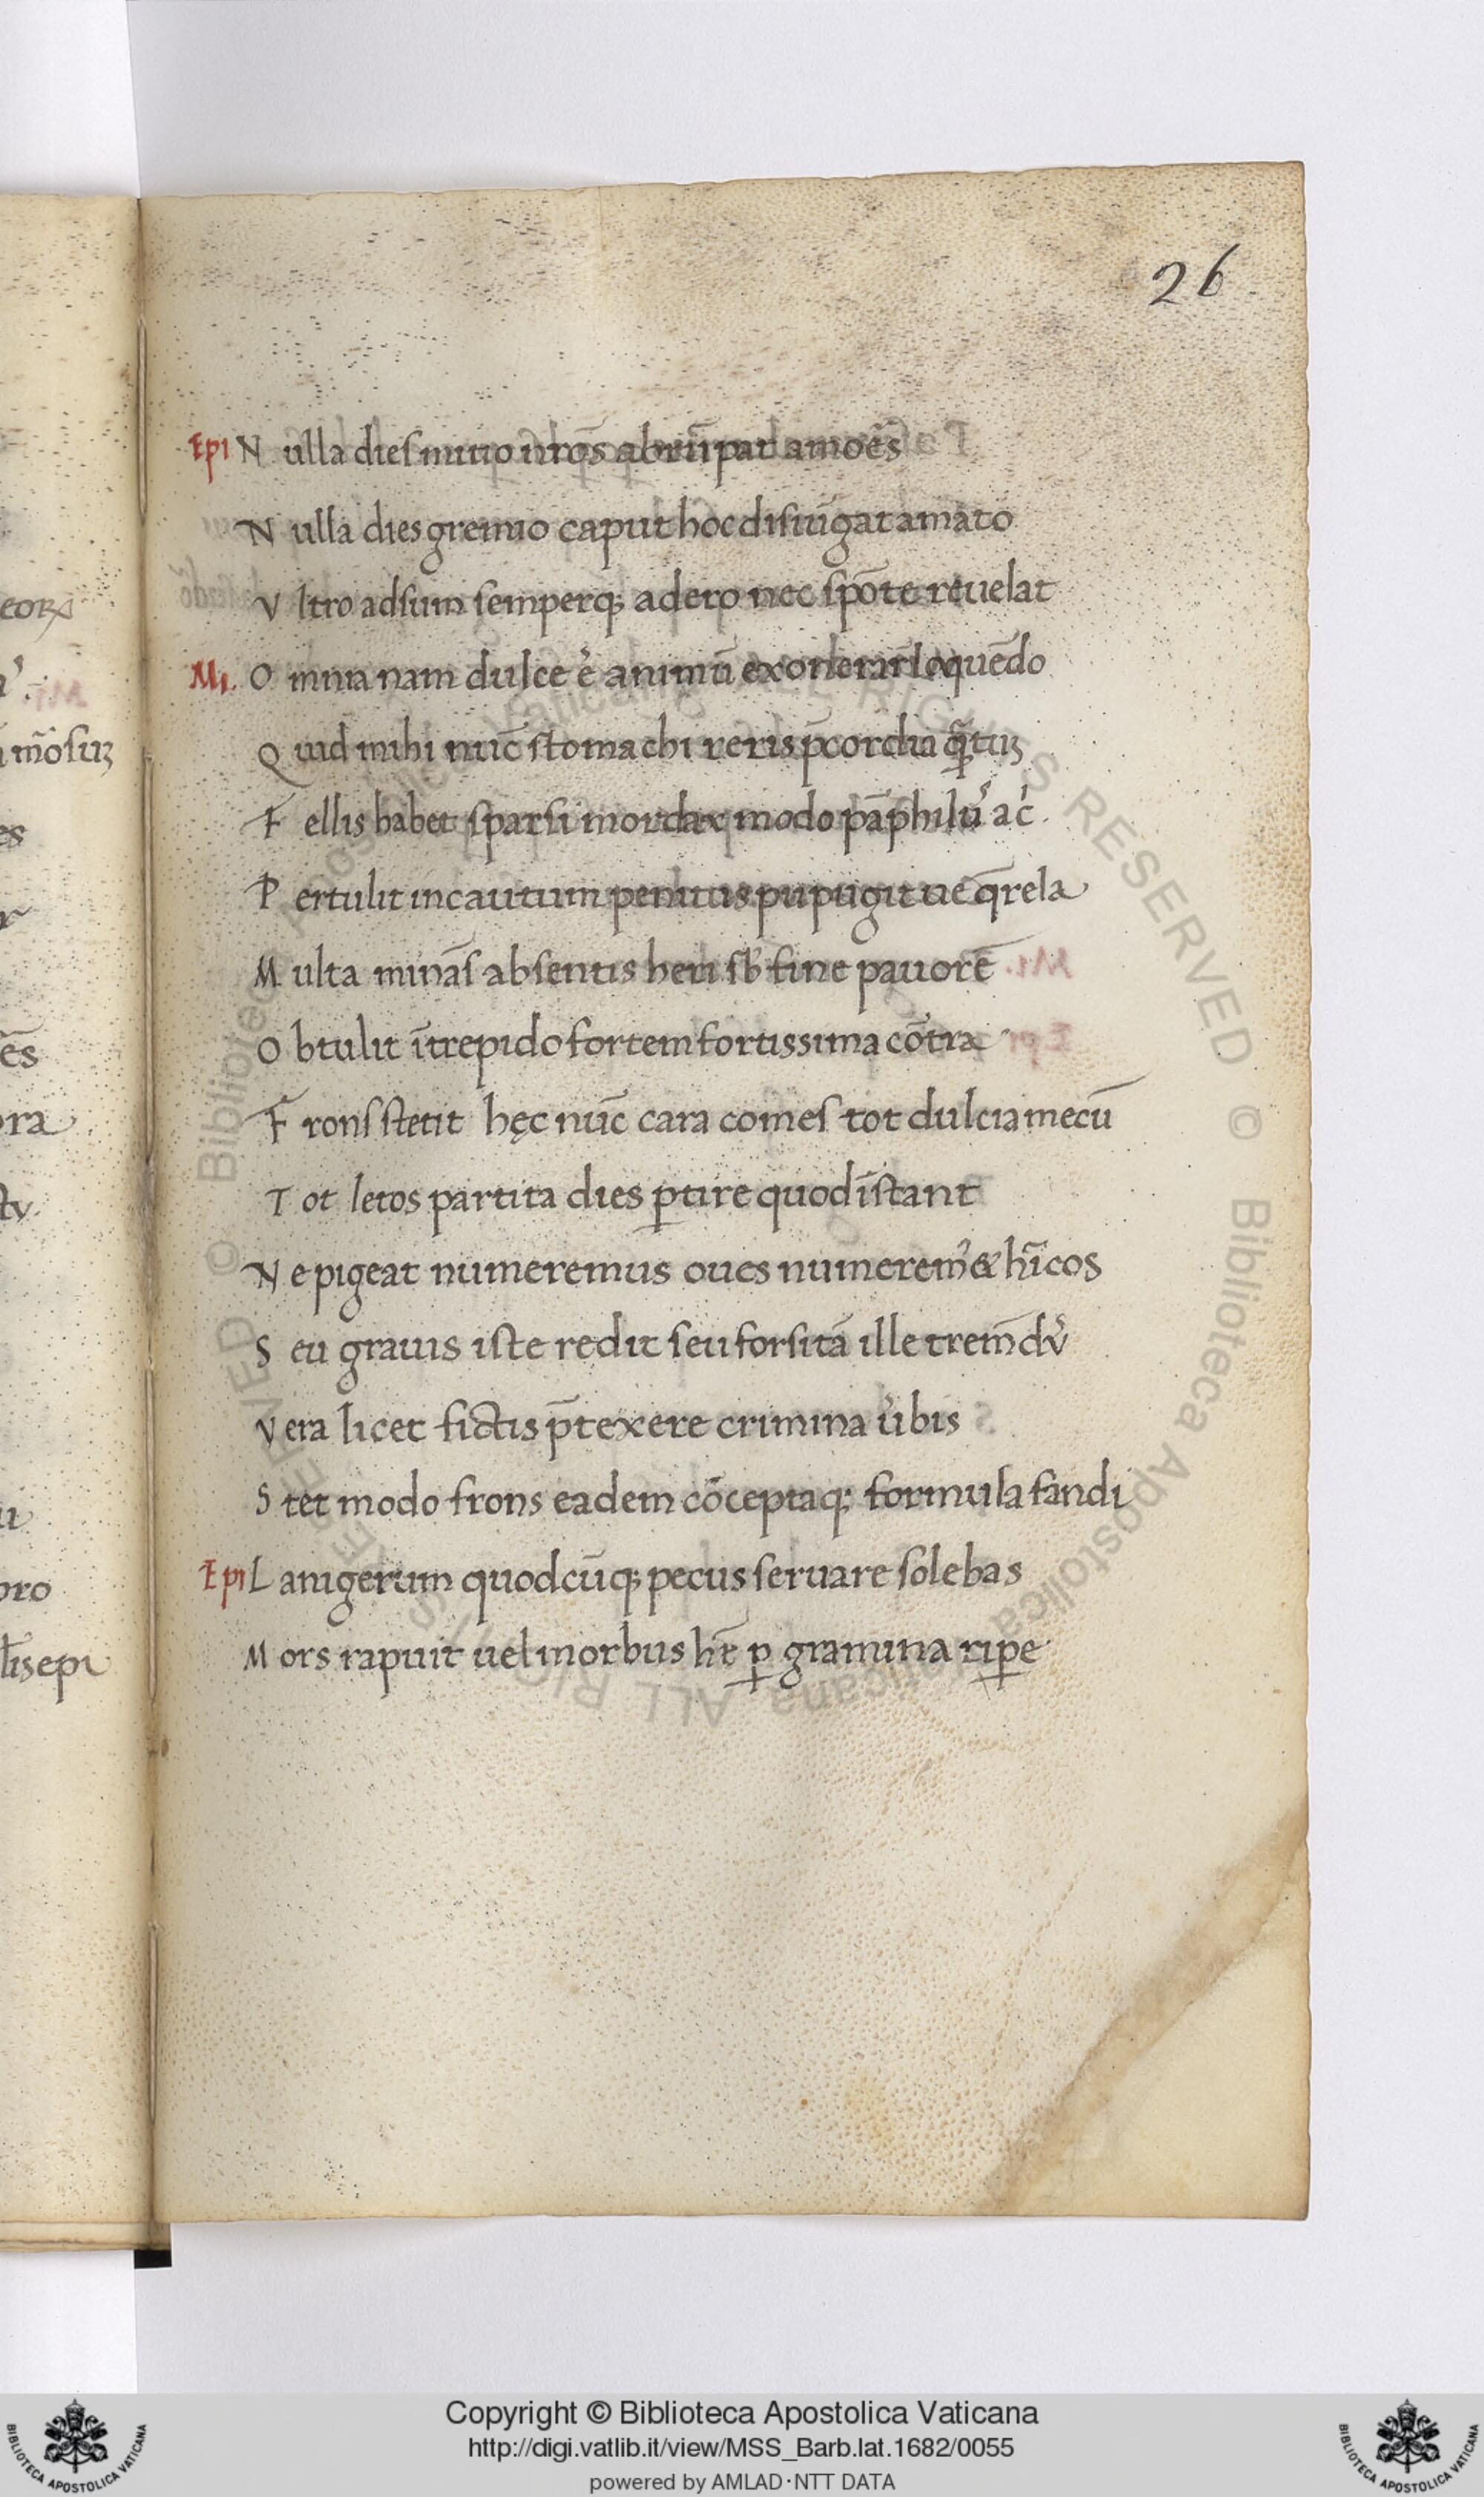 26
Epi N ulla dies inuito nr̄os abrūpat amoēs
N ulla dies gremio caput hoc disiūgat amato
V ltro adsum semperq; adero nec spōte reuelat
Mi. O mnia nam dulce ē animū exonerare loquēdo
Q uid mihi nūc stomachi reris p̄cordia q̄tuꝫ
F ellis habet sparsi mordax modo pāphilꝰ ac
P ertulit incautum penitus pupugit ue q̄rela
M ulta minās absentis heri sb fine pauorē
O btulit ītrepido fortem fortissima cōtra
F rons stetit hęc nūc cara comes tot dulcia mecū
T ot letos partita dies ꝑtire quod īstant
N e pigeat numeremus oues numeremꝰ & hīcos
S eu grauis iste redit seu forsitā ille trem̄dꝰ
V era licet fictis p̄texere crimina ubis
S tet modo frons eadem cōceptaq; formula fandi
Epi L anigerum quodcūq; pecus seruare solebas
M ors rapuit uel morbus hr̄t ꝑ gramina ripe
Copyright © Biblioteca Apostolica Vaticana
http://digi.vatlib.it/view/MSS_Barb.lat.1682/0055
powered by AMLAD·NTT DATA